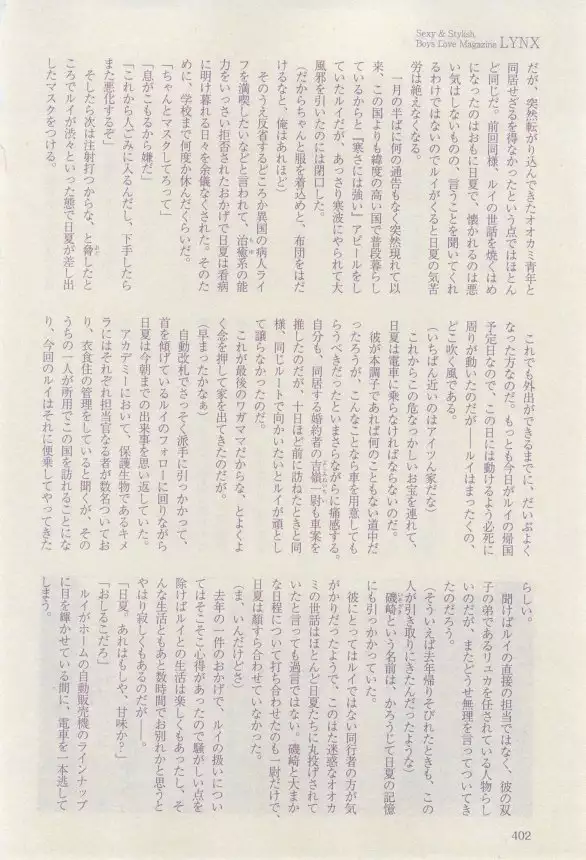 Sexy & Stylish
Boys Love Magazine LYNX
だが、突然転がり込んできたオオカミ青年と
同居せざるを得なかったという点ではほとん
ど同じだ。前回同様、ルイの世話を焼くはめ
になったのはおもに日夏で、懐かれるのは悪
い気はしないものの、言うことを聞いてくれ
るわけではないのでルイがくると日夏の気苦
労は絶えなくなる。
一月の半ばに何の通告もなく突然現れて以
来、この国よりも緯度の高い国で普段暮らし
ているからと「寒さには強い」アピールをし
ていたルイだが、あっさり寒波にやられて大
風邪を引いたのには閉口した。
（だからちゃんと服を着込めと、布団をはだ
けるなと、俺はあれほど）
そのうえ反省するどころか異国の病人ライ
フを満喫したいなどと言われて、治癒系の能
力をいっさい拒否されたおかげで日夏は看病
に明け暮れる日々を余儀なくされた。そのた
めに、学校まで何度か休んだくらいだ。
「ちゃんとマスクしてろって」
「息がこもるから嫌だ」
「これから人ごみに入るんだし、下手したら
また悪化するぞ」
そしたら次は注射打つからな、と脅したと
ころでルイが渋々といった態で日夏が差し出
したマスクをつける。
これでも外出ができるまでに、だいぶよく
なった方なのだ。もっとも今日がルイの帰国
予定日なので、この日には動けるよう必死に
周りが動いたのだが──ルイはまったくの、
どこ吹く風である。
（いちばん近いのはアイツん家だな）
これからこの危なっかしいお宝を連れて、
日夏は電車に乗らなければならないのだ。
彼が本調子であれば何のこともない道中だ
ったろうが、こんなことなら車を用意しても
らうべきだったといまさらながらに痛感する。
自分も、同居する婚約者の吉嶺一尉も車案を
推したのだが、十日ほど前に訪ねてきたときと同
様、同じルートで向かいたいとルイが頑とし
て譲らなかったのだ。
これが最後のワガママだからな、とよくよ
く念を押して家を出てきたのだが。
（早まったかなぁ）
自動改札でさっそく派手に引っかかって、
首を傾げているルイのフォローに回りながら
日夏は今朝までの出来事を思い返していた。
アカデミーにおいて、保護生物であるキメ
ラにはそれぞれ担当官なる者が数名ついてお
り、衣食住の管理をしていると聞くが、その
うちの一人が所用でこの国を訪れることにな
り、今回のルイはそれに便乗してやってきた
らしい。
聞けばルイの直接の担当ではなく、彼の双
子の弟であるリュカを任されている人物らし
いのだが、またどうせ無理を言ってついてき
たのだろう。
（そういえば去年帰りそびれたときも、この
人が引き取りにきたんだったような）
磯崎という名前は、かろうじて日夏の記憶
にも引っかかっていた。
彼にとってはルイではない同行者の方が気
がかりだったようで、このはた迷惑なオオカ
ミの世話はほとんど日夏たちに丸投げされて
いたと言っても過言ではない。磯崎と大まか
な日程について打ち合わせたのも一尉だけで、
日夏は顔すら合わせていなかった。
（ま、いんだけどさ）
去年の一件のおかげで、ルイの扱いについ
てはそこそこ心得があったので騒がしい点を
除けばルイとの生活は楽しくもあったし、そ
んな生活ともあと数時間でお別れかと思うと
やはり寂しくもあるのだが──。
「日夏。あれはもしや、甘味か？」
「おしるこだろ」
ルイがホームの自動販売機のラインナップ
に目を輝かせている間に、電車を一本逃して
しまう。
402